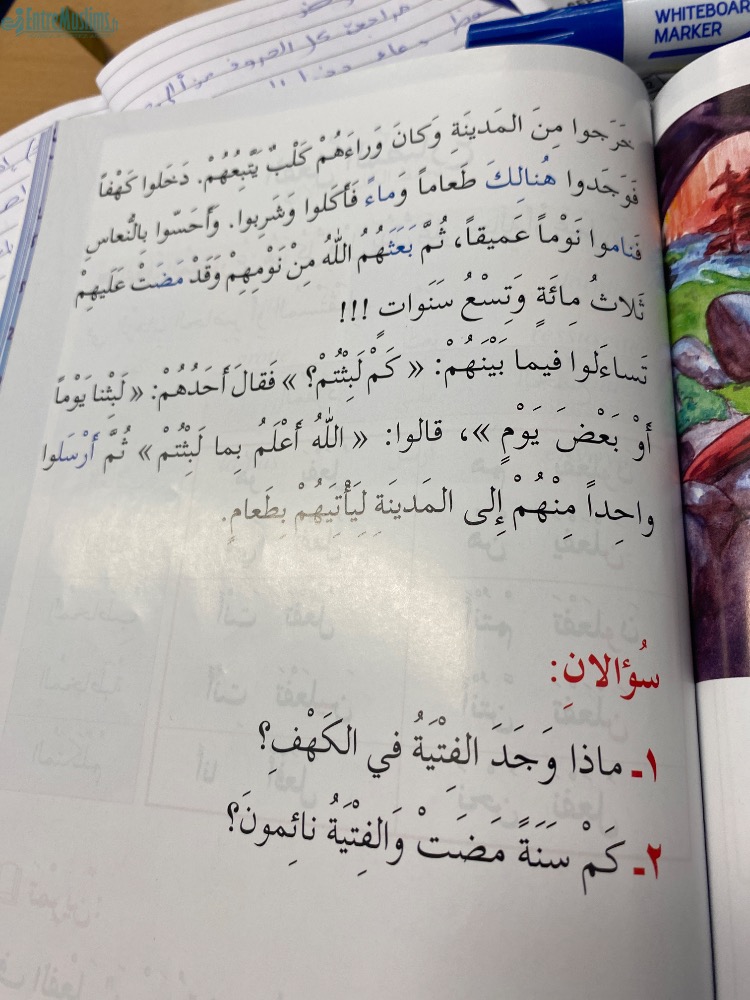 EntreMuslims.fr
WHITEBOAR
MARKER
مراجعة كل الحروف
خَرَجوا مِنَ المَدينَةِ وَكانَ وَراءَهُمْ كَلْبٌ يَتَّبِعُهُمْ. دَخَلوا كَهْفاً
فَوَجَدوا هُنالِكَ طَعاماً وَماءً فَأَكَلوا وَشَرِبوا. وَأَحَسّوا بِالنُّعاسِ
فَناموا نَوْماً عَميقاً، ثُمَّ بَعَثَهُمُ اللهُ مِنْ نَوْمِهِمْ وَقَدْ مَضَتْ عَلَيهِمْ
ثَلاثُ مِائَةٍ وَتِسْعُ سَنَواتٍ !!!
تَساءَلوا فيما بَيْنَهُمْ: « كَمْ لَبِثْتُمْ؟ » فَقالَ أَحَدُهُمْ: « لَبِثْنا يَوْماً
أَوْ بَعْضَ يَوْمٍ »، قالوا: « اللهُ أَعْلَمُ بِما لَبِثْتُمْ » ثُمَّ أَرْسَلوا
واحِداً مِنْهُمْ إِلى المَدينَةِ لِيَأْتِيَهُمْ بِطَعامٍ.
سُؤالانِ:
١ـ ماذا وَجَدَ الفِتْيَةُ في الكَهْفِ؟
٢ـ كَمْ سَنَةً مَضَتْ وَالفِتْيَةُ نائِمونَ؟